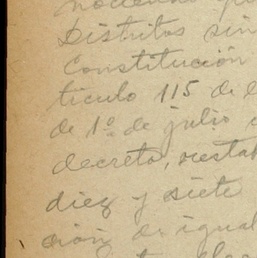 Distritos sin
Constitución
tículo 115 de l
de 1º de julio
decreto, restab
diez y siete
ción de igual